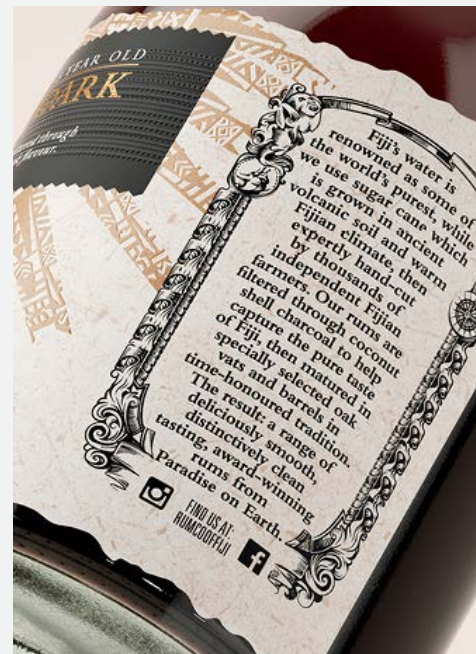 YEAR OLD
through
flavour.
Fiji's water is
renowned as some of
the world's purest, while
we use sugar cane which
is grown in ancient
volcanic soil and warm
Fijian climate, then
expertly hand-cut
by thousands of
independent Fijian
farmers. Our rums are
filtered through coconut
shell charcoal to help
capture the pure taste
of Fiji, then matured in
specially selected oak
vats and barrels in
time-honoured tradition.
The result: a range of
deliciously smooth,
distinctively clean
tasting, award-winning
rums from
Paradise on Earth.
FIND US AT:
RUMCOOFFIJI